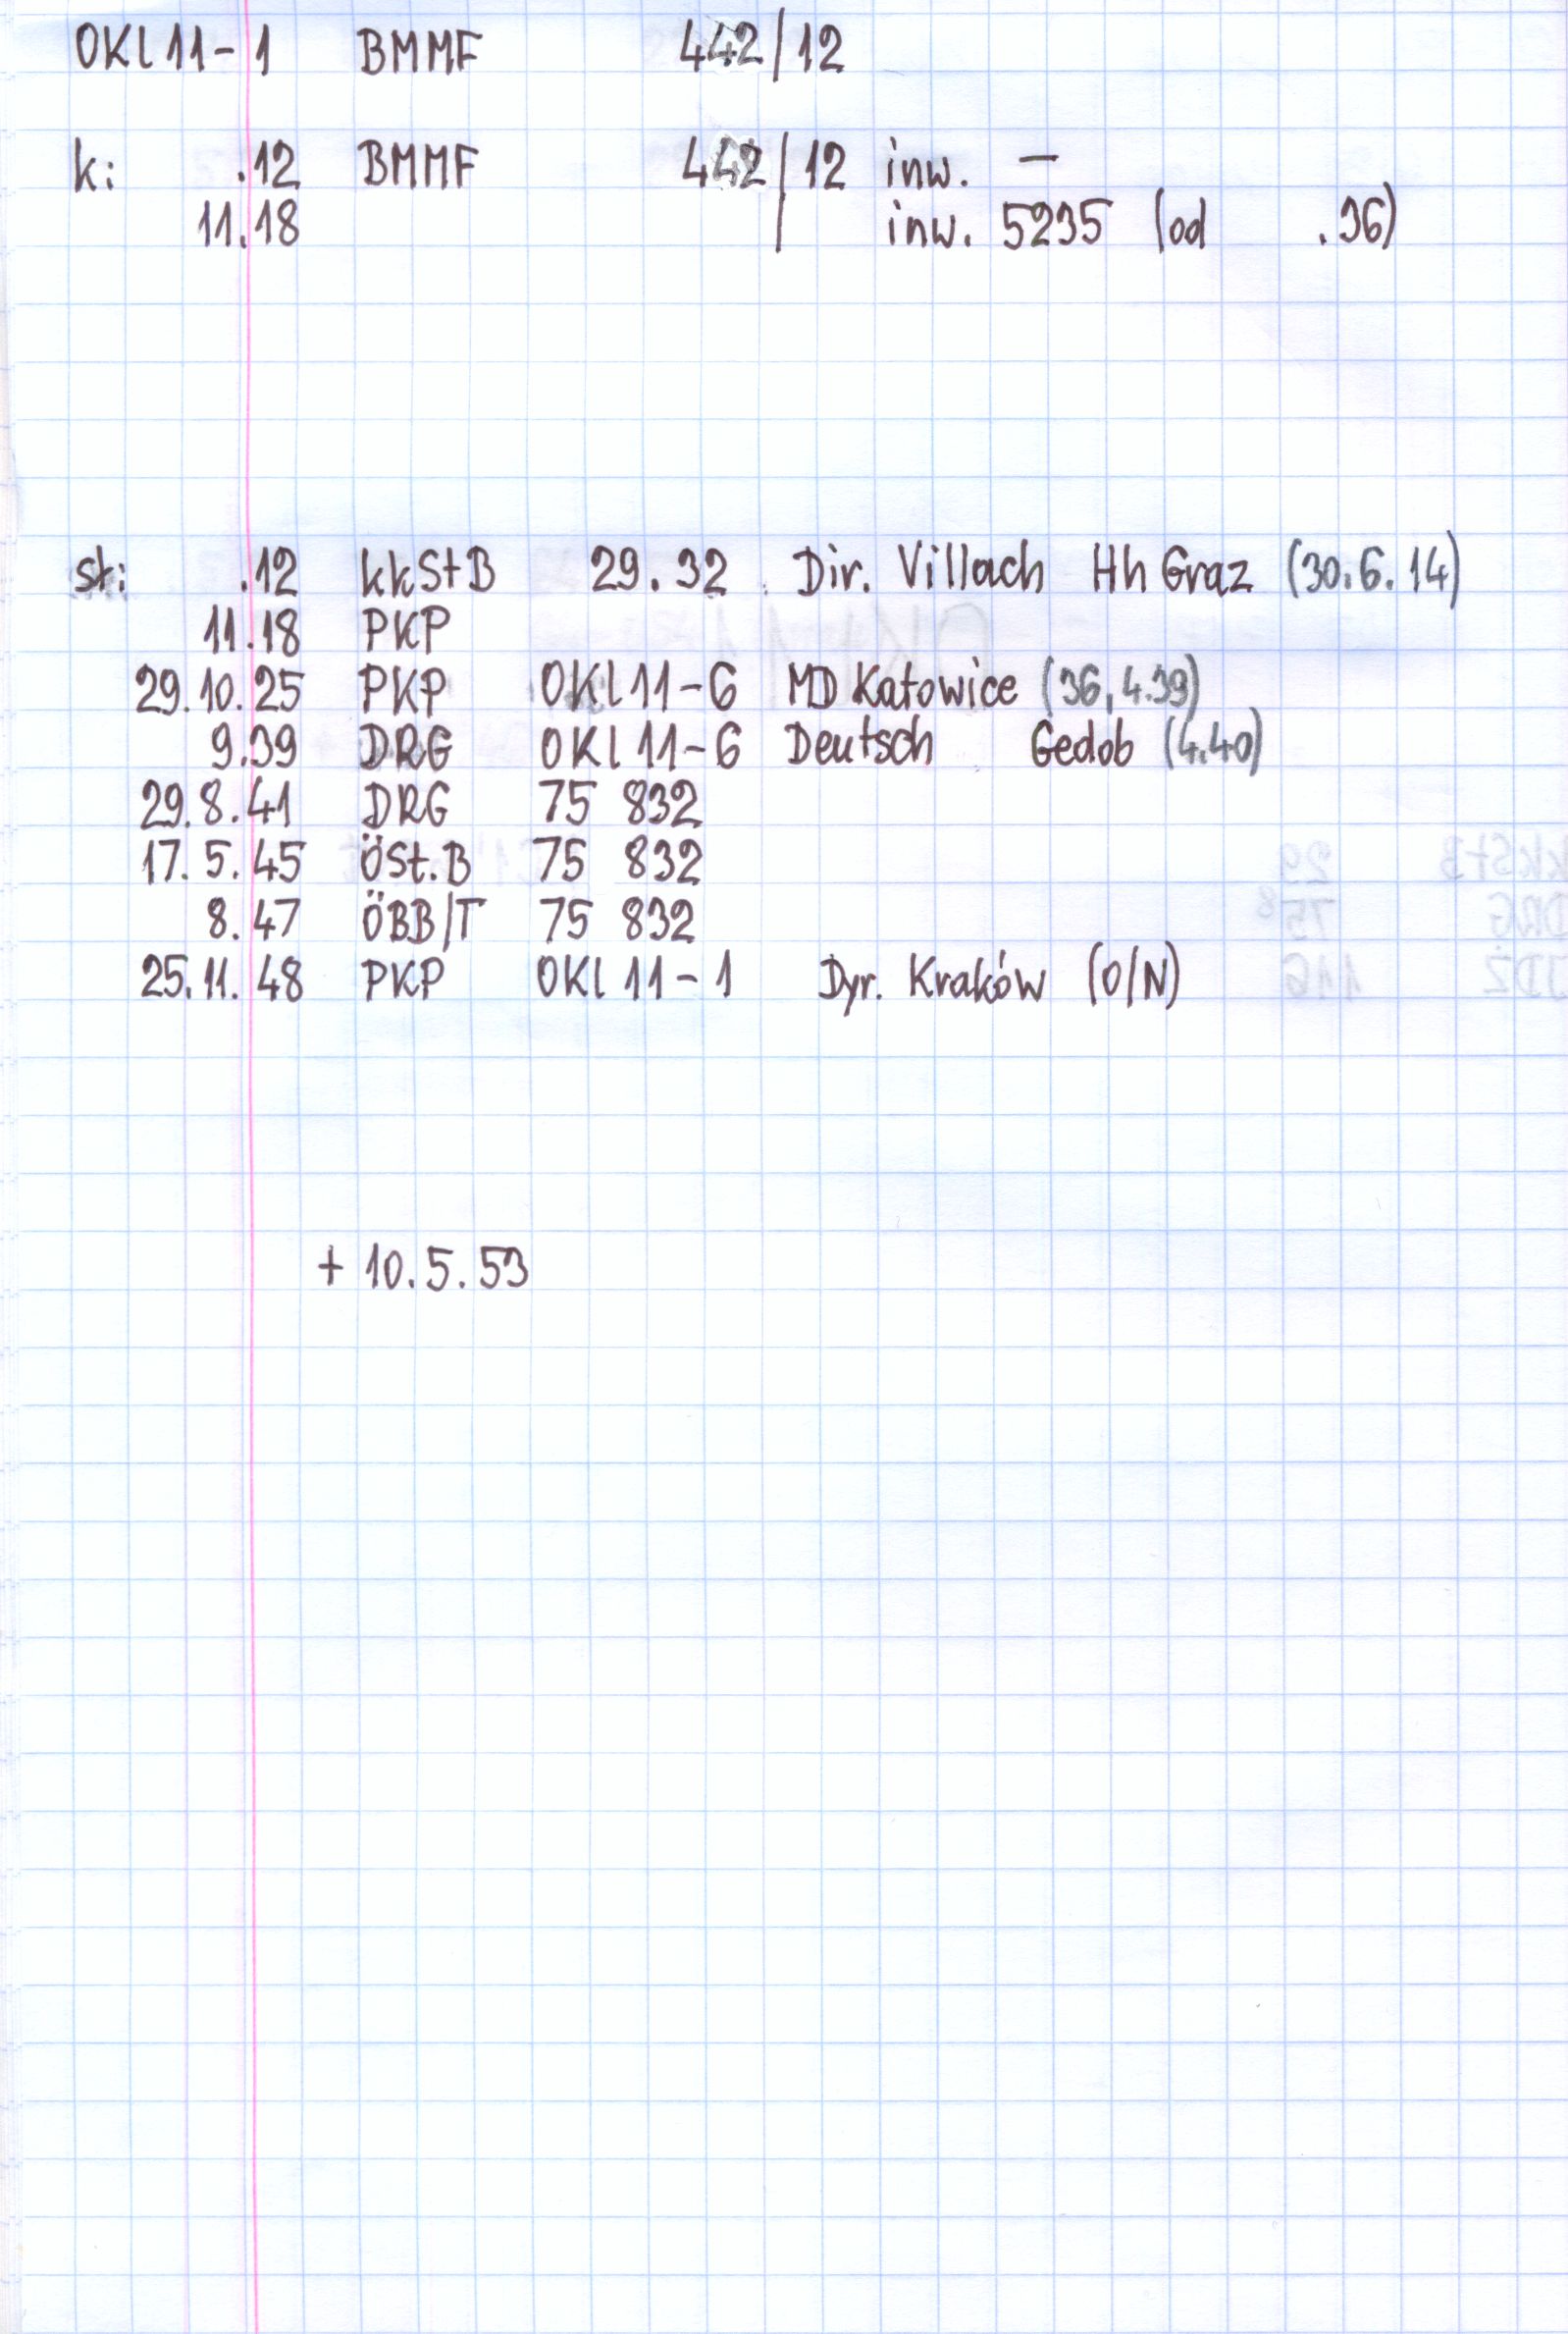 OKl 11-1 BMMF 442/12
k: .12 BMMF 442/12 inw. –
11.18 / inw. 5235 (od .36)
st: .12 kkStB 29.32 Dir. Villach Hh Graz (30.6.14)
11.18 PKP
29.10.25 PKP OKl 11-6 MD Katowice (36, 4.39)
9.39 DRG OKl 11-6 Deutsch Gedob (4.40)
29.8.41 DRG 75 832
17.5.45 ÖSt.B 75 832
8.47 ÖBB/T 75 832
25.11.48 PKP OKl 11-1 Dyr. Kraków (O/N)
+ 10.5.53